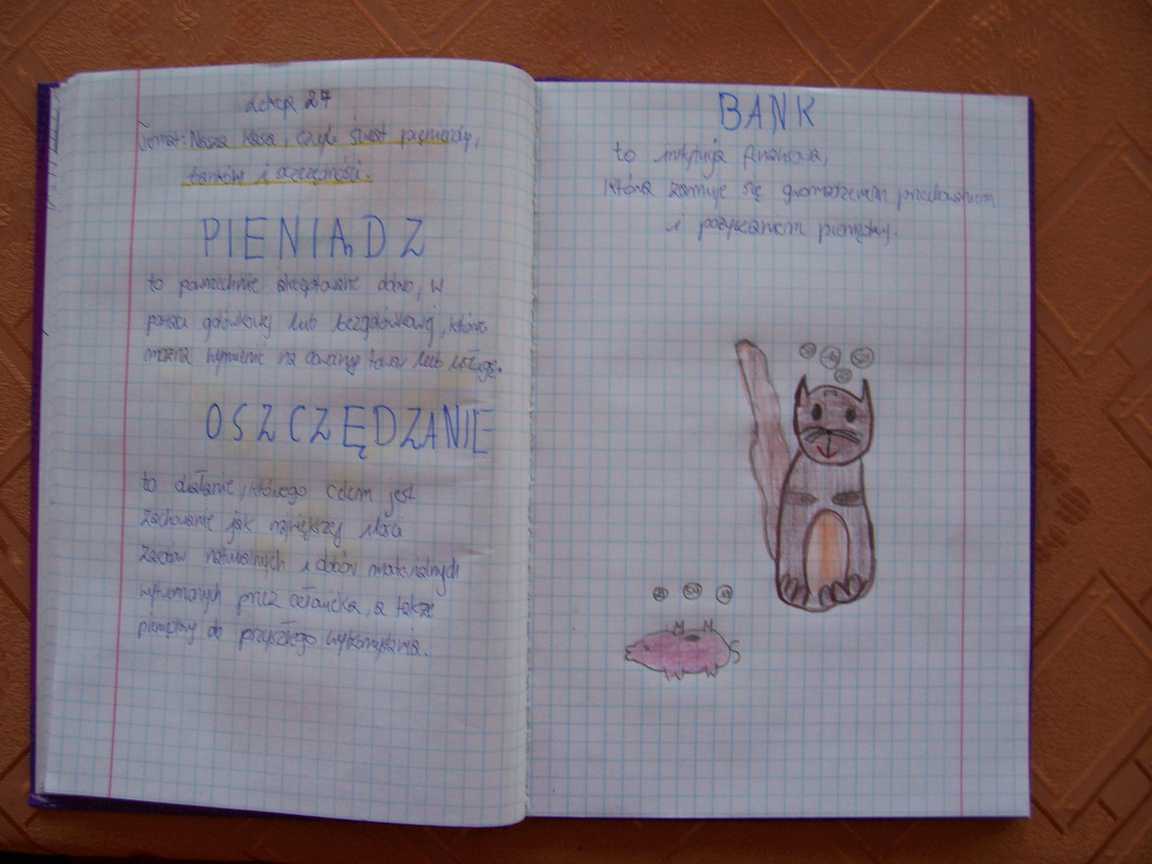 Lekcja 27
Temat: Nasza kasa, czyli świat pieniędzy,
banków i oszczędności.
PIENIĄDZ
to powszechnie akceptowane dobro, w
postaci gotówkowej lub bezgotówkowej, które
można wymienić na dowolny towar lub usługę.
OSZCZĘDZANIE
to działanie, którego celem jest
zachowanie jak największej ilości
zasobów naturalnych i dóbr materialnych
wytworzonych przez człowieka, a także
pieniędzy do przyszłego wykorzystania.
BANK
to instytucja finansowa,
która zajmuje się gromadzeniem przechowywaniem
i pożyczaniem pieniędzy.